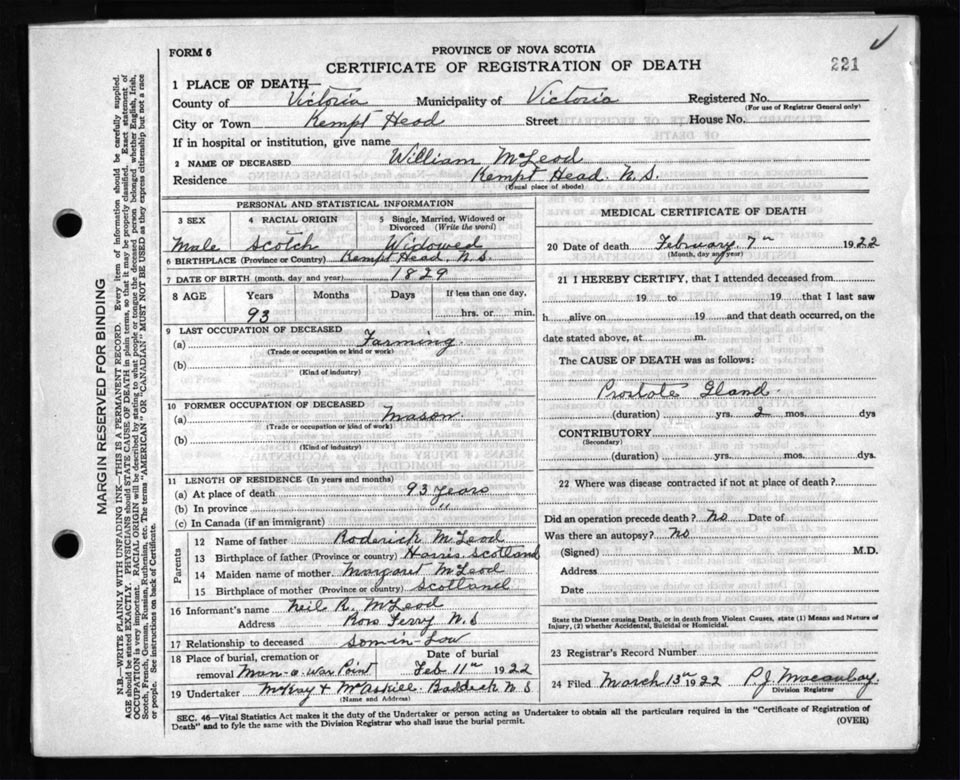 FORM 6
PROVINCE OF NOVA SCOTIA
CERTIFICATE OF REGISTRATION OF DEATH
221
1 PLACE OF DEATH—
County of Victoria Municipality of Victoria Registered No.
(For use of Registrar General only)
City or Town Kempt Head Street House No.
If in hospital or institution, give name
2 NAME OF DECEASED William McLeod
Residence Kempt Head. N.S.
(Usual place of abode)
PERSONAL AND STATISTICAL INFORMATION
3 SEX 4 RACIAL ORIGIN 5 Single, Married, Widowed or Divorced (Write the word)
Male Scotch Widowed
6 BIRTHPLACE (Province or Country) Kempt Head, N.S.
7 DATE OF BIRTH (month, day and year) 1829
8 AGE Years Months Days If less than one day,
93 hrs. or min.
9 LAST OCCUPATION OF DECEASED
(a) Farming
(Trade or occupation or kind or work)
(b)
(Kind of industry)
10 FORMER OCCUPATION OF DECEASED
(a) Mason
(Trade or occupation or kind of work)
(b)
(Kind of industry)
11 LENGTH OF RESIDENCE (In years and months)
(a) At place of death 93 years
(b) In province "
(c) In Canada (if an immigrant)
Parents
12 Name of father Roderick McLeod
13 Birthplace of father (Province or country) Harris Scotland
14 Maiden name of mother Margaret McLeod
15 Birthplace of mother (Province or country) Scotland
16 Informant's name Neil R. McLeod
Address Ross Ferry N.S
17 Relationship to deceased Son-in-Law
18 Place of burial, cremation or removal Man-a-War Point Date of burial Feb 11th 1922
19 Undertaker McKay & McAskill Baddeck N S
(Name and Address)
MEDICAL CERTIFICATE OF DEATH
20 Date of death February 7th 1922
(Month, day and year)
21 I HEREBY CERTIFY, that I attended deceased from
19 to 19 that I last saw
h alive on 19 and that death occurred, on the
date stated above, at m.
The CAUSE OF DEATH was as follows:
Prostate Gland
(duration) yrs. 2 mos. dys
CONTRIBUTORY
(Secondary)
(duration) yrs. mos. dys.
22 Where was disease contracted if not at place of death?
Did an operation precede death? No Date of
Was there an autopsy? No
(Signed) M.D.
Address
Date
State the Disease causing Death, or in death from Violent Causes, state (1) Means and Nature of Injury, (2) whether Accidental, Suicidal or Homicidal.
23 Registrar's Record Number
24 Filed March 13th 1922 P.J. Macaulay
Division Registrar
SEC. 46—Vital Statistics Act makes it the duty of the Undertaker or person acting as Undertaker to obtain all the particulars required in the "Certificate of Registration of
Death" and to fyle the same with the Division Registrar who shall issue the burial permit.
(OVER)
MARGIN RESERVED FOR BINDING
N.B.—WRITE PLAINLY WITH UNFADING INK—THIS IS A PERMANENT RECORD. Every item of information should be carefully supplied.
AGE should be stated EXACTLY. PHYSICIANS should STATE CAUSE OF DEATH in plain terms, so that it may be properly classified. Exact statement of
OCCUPATION is very important. RACIAL ORIGIN will be described by stating to what people or tongue the deceased person belonged, whether English, Irish,
Scotch, French, German, Russian, Ruthenian, etc. The terms "AMERICAN" OR "CANADIAN" MUST NOT BE USED as they express citizenship but not a race
or people. See instructions on back of Certificate.